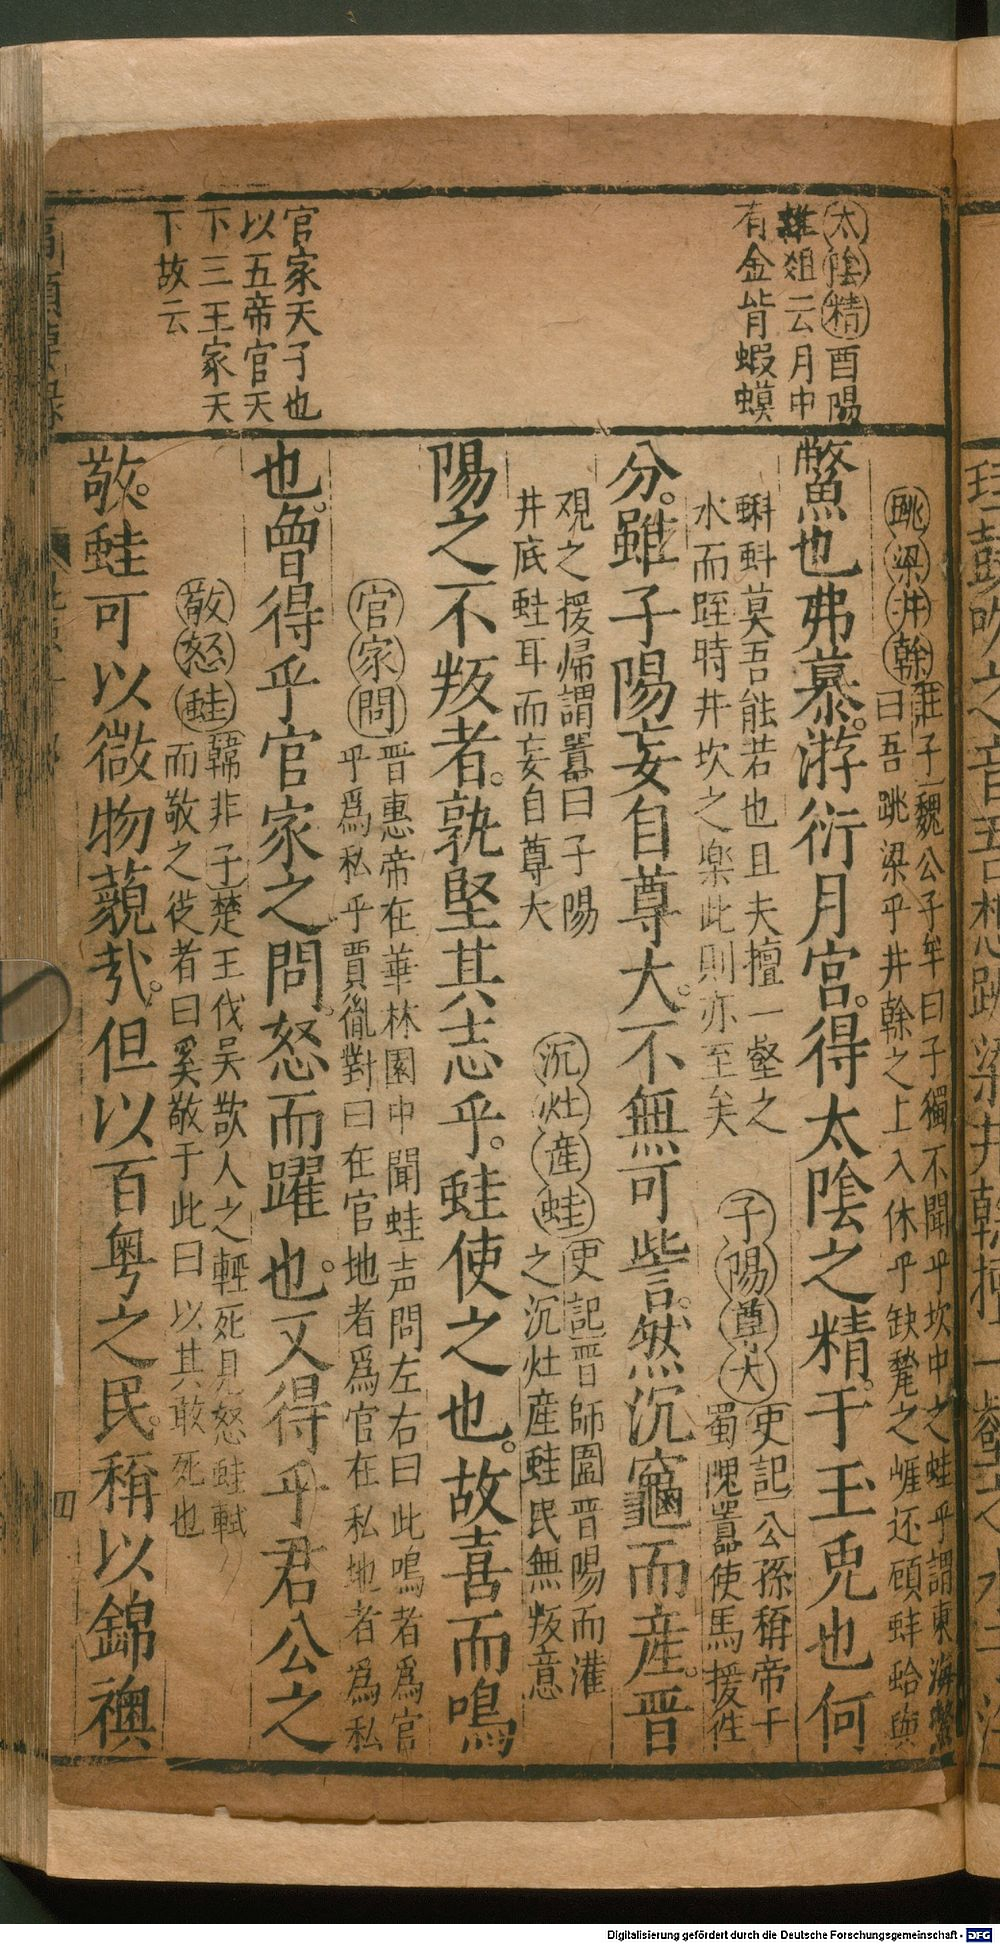 太陰精酉陽
雜爼云月中
有金背蝦蟆
官家天子也
以五帝官天
下三王家天
下故云
跳梁井榦莊子魏公子牟曰子獨不聞乎坎中之蛙乎謂東海鱉
曰吾跳梁乎井榦之上入休乎缺甃之崖还顧蚌蛤與
鱉也弗慕游衍月宮得太陰之精于玉兎也何
蝌蚪莫吾能若也且夫擅一壑之
水而跬時井坎之樂此則亦至矣
子陽尊大史記公孫稱帝于
蜀隗囂使馬援徃
分雖子陽妄自尊大不無可訾然沉竈而産晋
覌之援帰謂囂曰子陽
井底蛙耳而妄自尊大
沉灶産蛙史記晋師圍晋陽而灌
之沉灶産蛙民無叛意
陽之不叛者孰堅其志乎蛙使之也故喜而鳴
官家問晋惠帝在華林園中聞蛙声問左右曰此鳴者爲官
乎爲私乎賈胤對曰在官地者爲官在私地者爲私
也曾得乎官家之問怒而躍也又得乎君公之
敬怒蛙韓非子楚王伐吴欲人之輕死見怒蛙軾
而敬之從者曰奚敬于此曰以其敢死也
敬蛙可以微物藐㦲但以百粤之民稱以錦襖
四
Digitalisierung gefördert durch die Deutsche Forschungsgemeinschaft - DFG